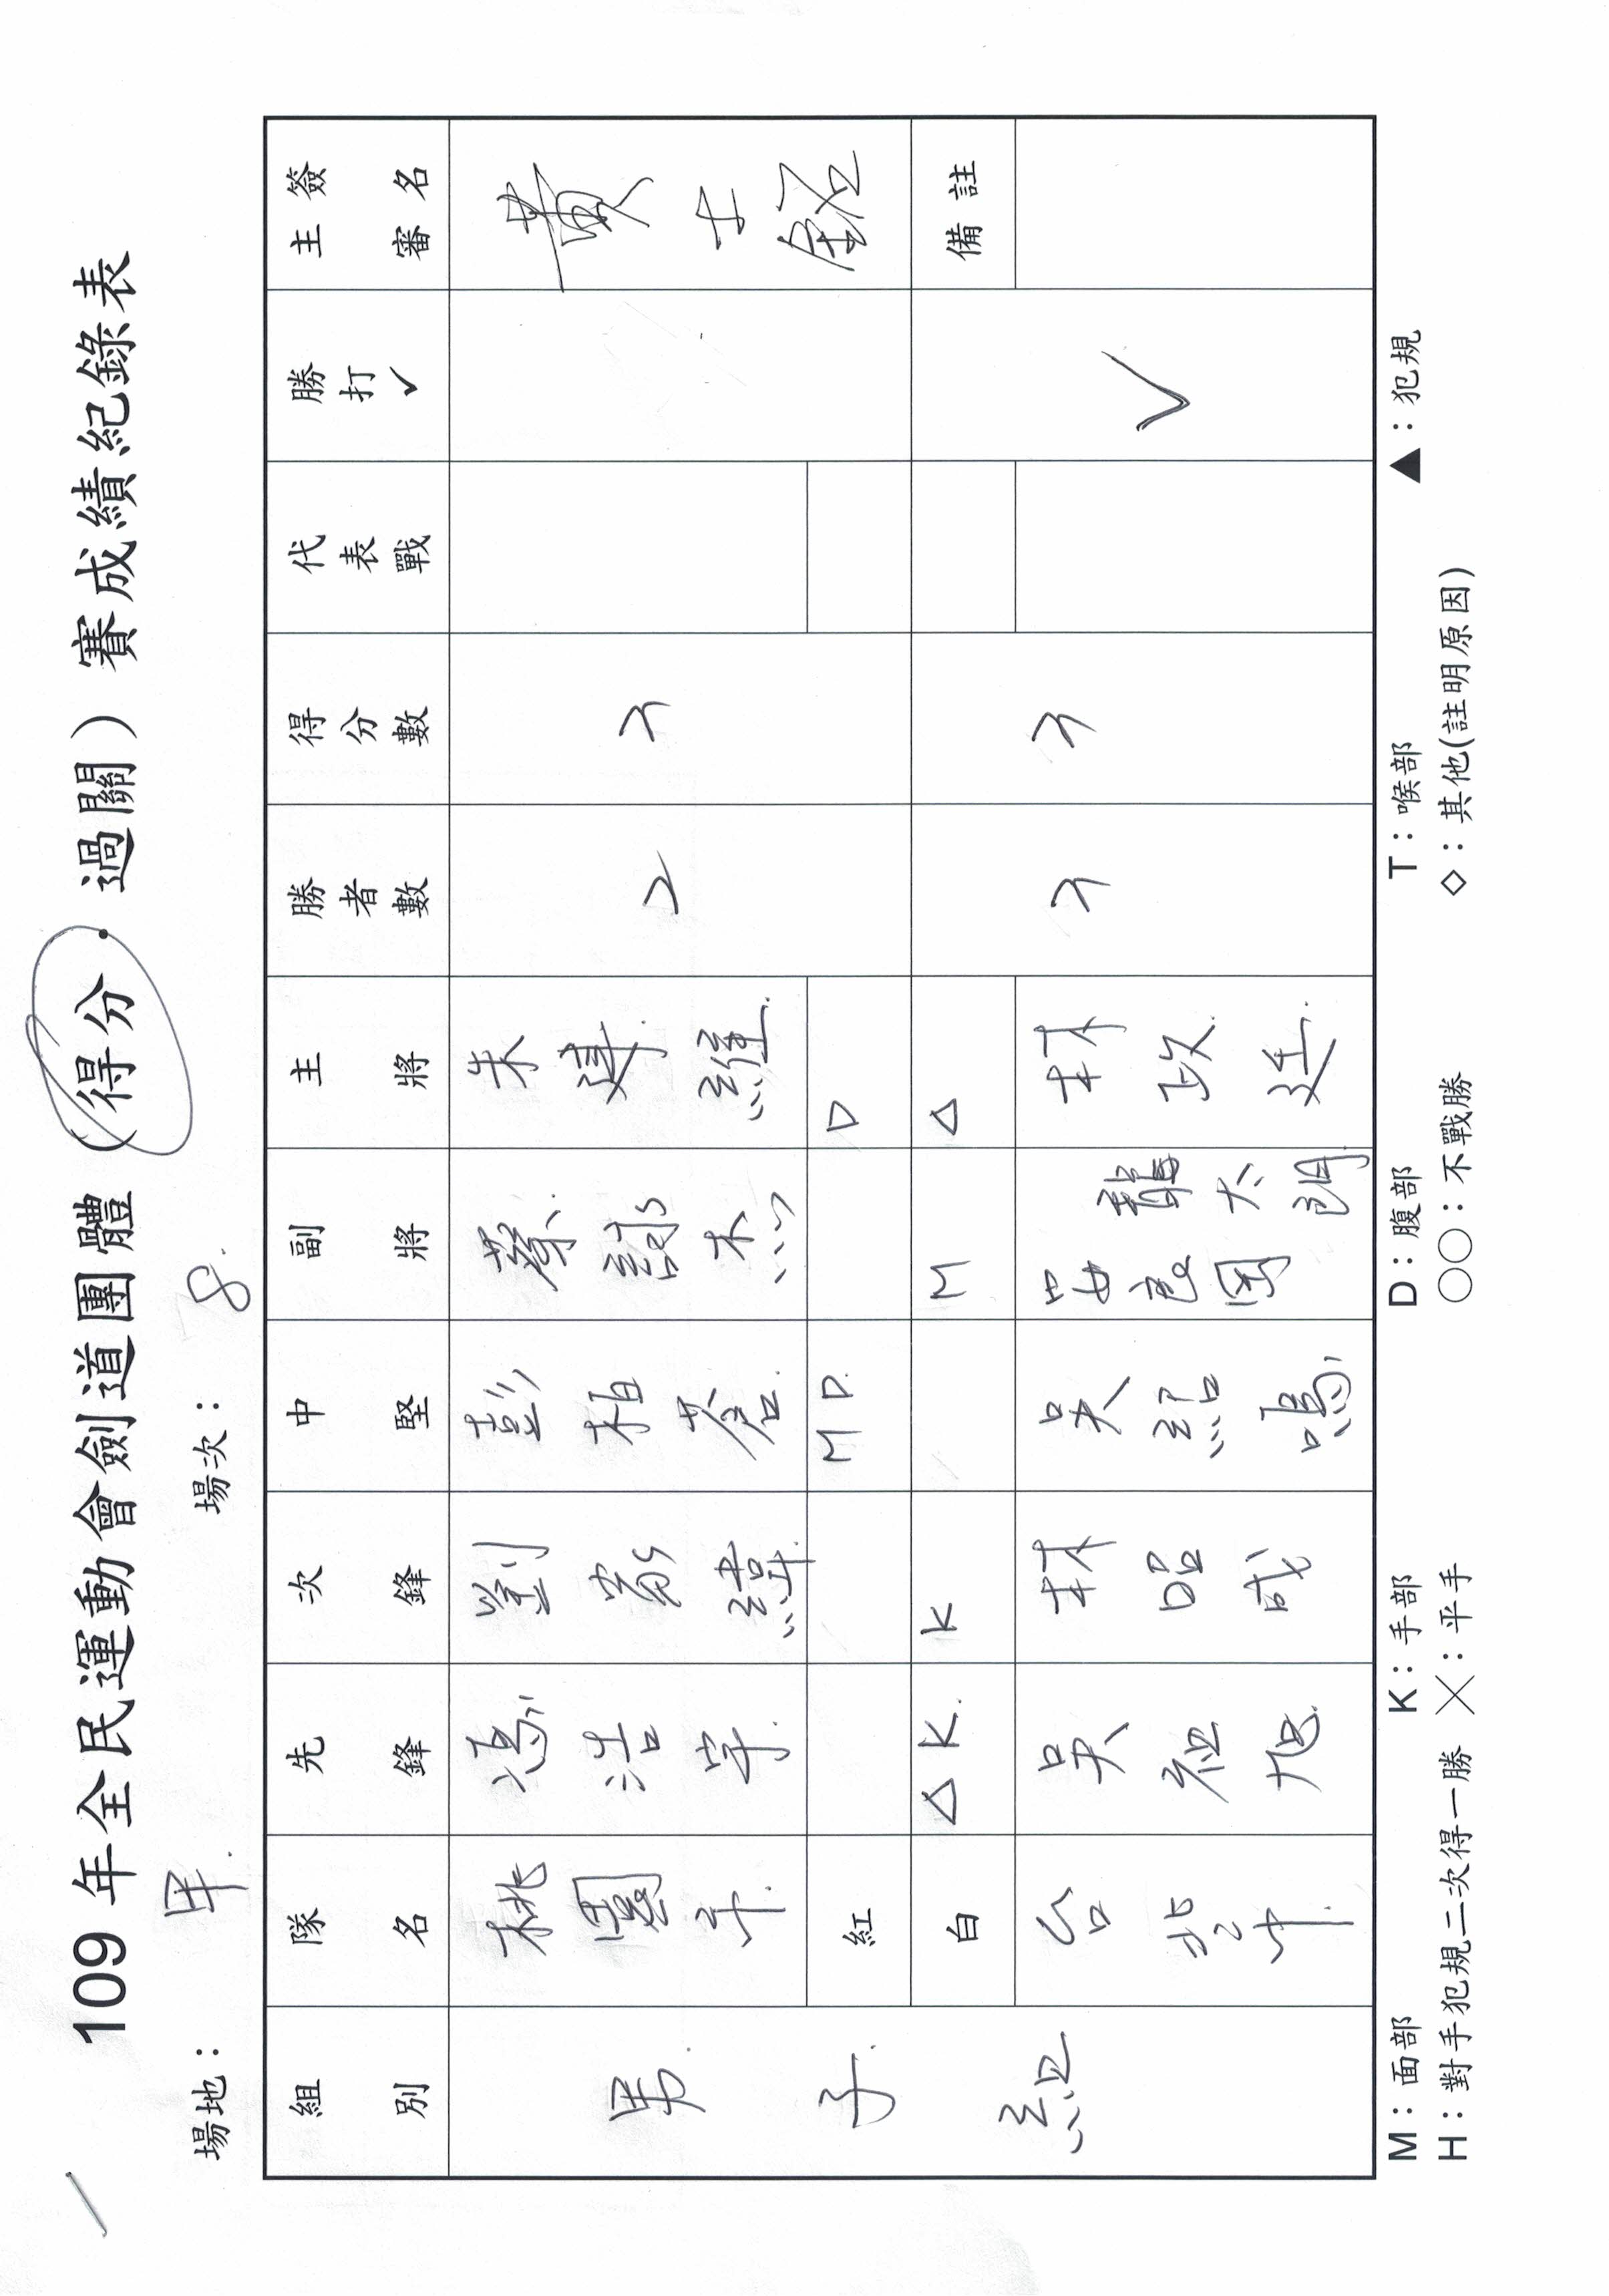 109 年全民運動會劍道團體（得分．過關）賽成績紀錄表
場地：甲 場次：8
組別 隊名 先鋒 次鋒 中堅 副將 主將 勝者數 得分數 代表戰 勝打✓ 主審簽名
男子組 桃園市 馮浩宇 劉 緯 彭柏 蔡 杰 朱建 2 3 黃士
紅 M D D
白 △ K K M △ 備註
台北市 吳祖旭 林昭成 吳紹鳴 安良岡龍太朗 林政廷 3 3 ✓
M：面部 K：手部 D：腹部 T：喉部 ▲：犯規
H：對手犯規二次得一勝 ╳：平手 〇〇：不戰勝 ◇：其他(註明原因)